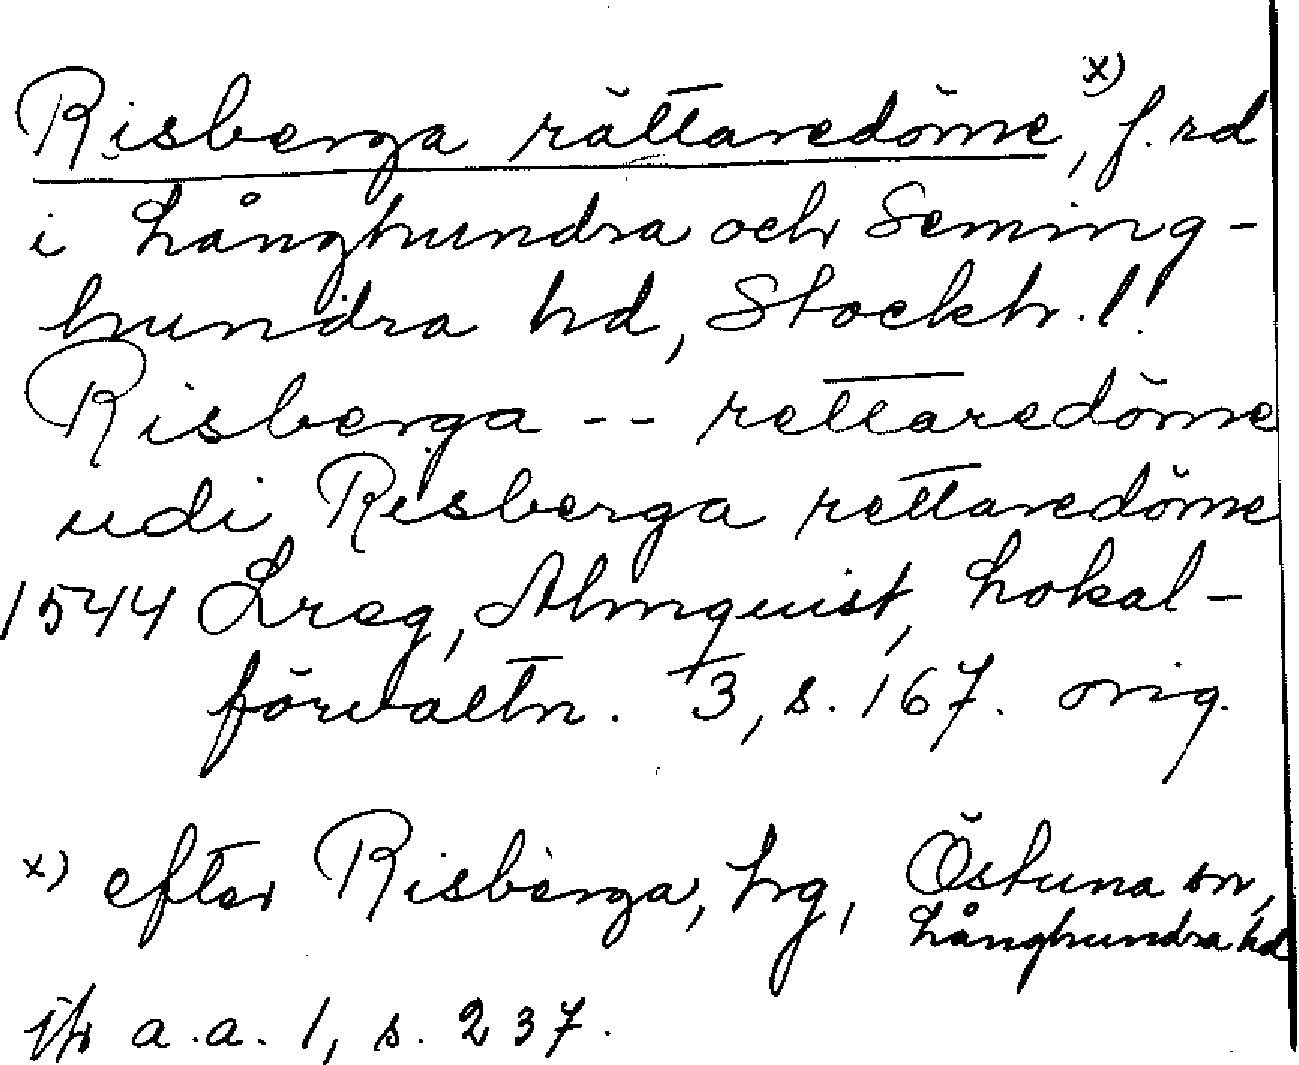 Risberga rättaredöme, x) f. rd
i Långhundra och Seming-
hundra hd, Stockh. l.
Risberga -- rettaredöme
udi Risberga rettaredöme
1544 Lreg, Almquist, Lokal-
förvaltn. 3, s. 167. orig.
x) efter Risberga, hg, Östuna sn,
Långhundra hd
jfr a.a. 1, s. 237.